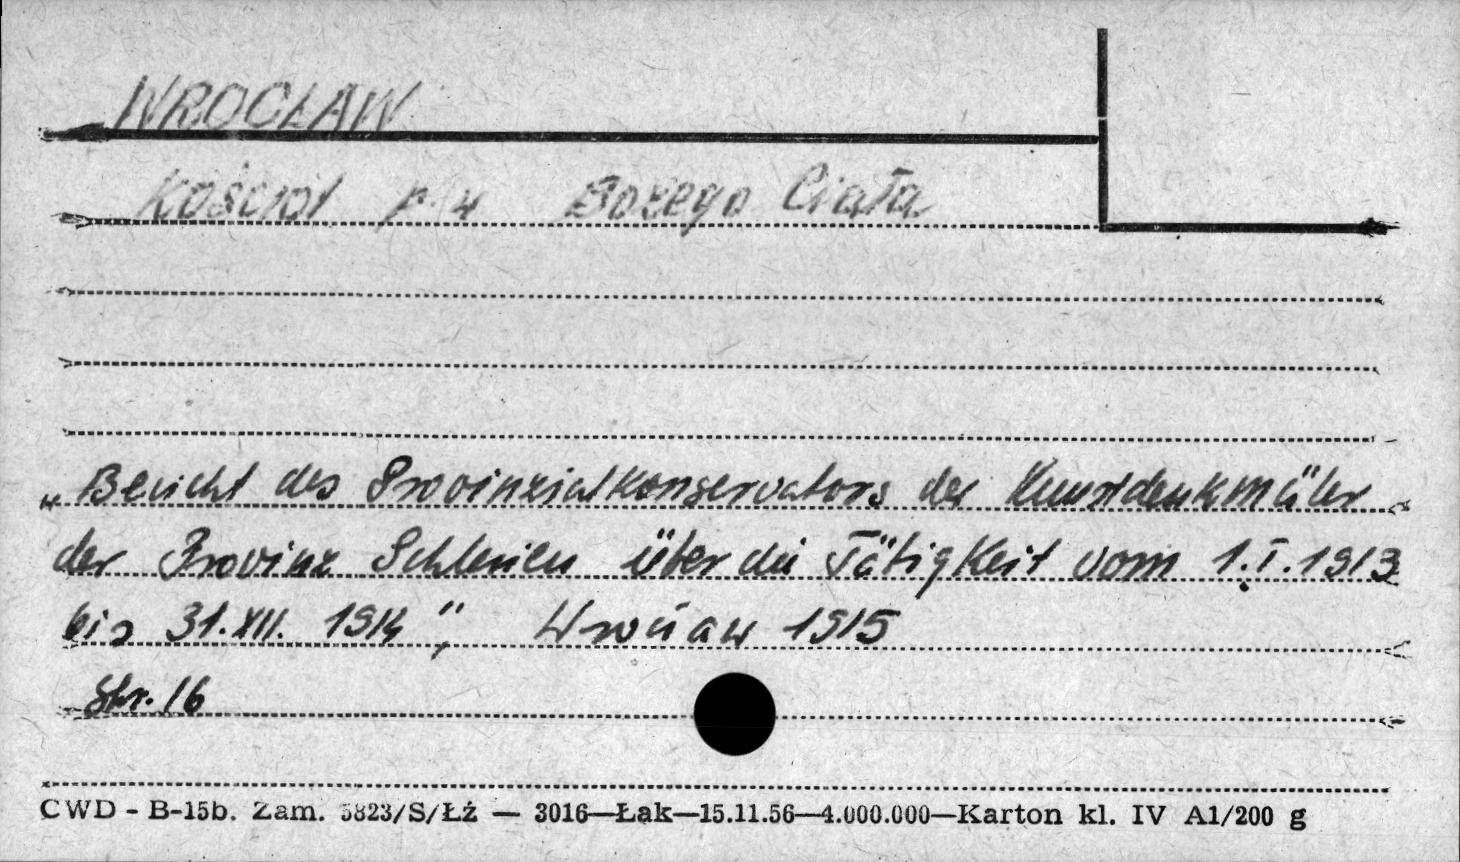 WROCŁAW
Kościół p.w Bożego Ciała
„Bericht des Provinzialkonservators der Kunstdenkmäler
der Provinz Schlesien über die Tätigkeit vom 1.I.1913
bis 31.XII. 1914", Wrocław 1915
Str. 16
CWD - B-15b. Zam. 5823/S/Łż — 3016—Łak—15.11.56—4.000.000—Karton kl. IV A1/200 g